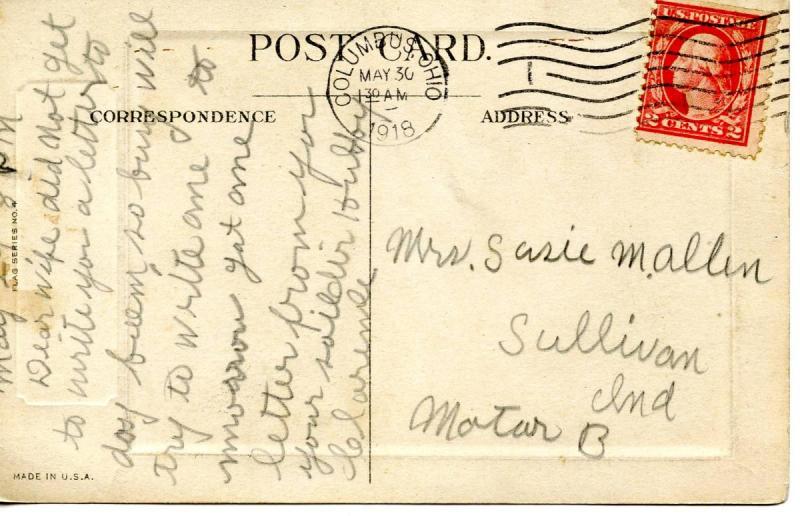 POST CARD.
CORRESPONDENCE
ADDRESS
COLUMBUS, OHIO
MAY 30
1 30 AM
1918
U.S. POSTAGE
2 CENTS 2
FLAG SERIES NO. 4
May 8 PM
Dear wife did not get
to write you a letter to
day been so busy will
try to write one to
morrow got one
letter from you
your soilder Hubby
Clarence
Mrs. Susie M. Allen
Sullivan
Ind
Motor B
MADE IN U.S.A.